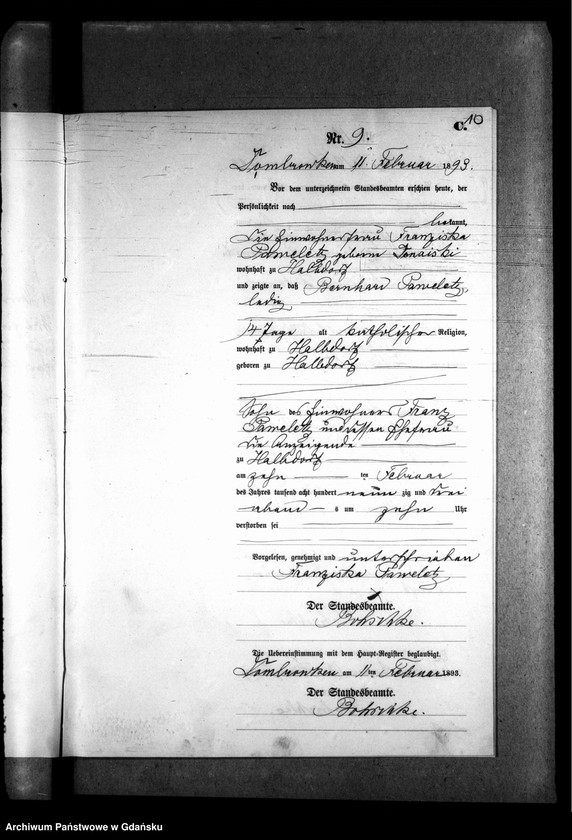 C. 10
Nr. 9.
Dombrowken am 11. Februar 1893.
Vor dem unterzeichneten Standesbeamten erschien heute, der
Persönlichkeit nach
bekannt,
die Einwohnerfrau Franziska
Paweletz geborene
wohnhaft zu Halbdorf
und zeigte an, daß Bernhard Paweletz,
ledig
14 Tage alt katholischer Religion,
wohnhaft zu Halbdorf
geboren zu Halbdorf
Sohn des Einwohners Franz
Paweletz und dessen Ehefrau
die Anzeigende
zu Halbdorf
am zehn ten Februar
des Jahres tausend acht hundert neun zig und drei
abend s um zehn Uhr
verstorben sei
Vorgelesen, genehmigt und unterschrieben
Franziska Paweletz
Der Standesbeamte.
Die Uebereinstimmung mit dem Haupt-Register beglaubigt.
Dombrowken am 11ten Februar 1893.
Der Standesbeamte.
Archiwum Państwowe w Gdańsku